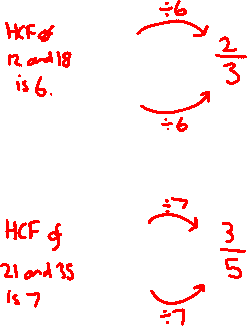 ÷6
HCF of
12 and 18
is 6.
2
3
÷6
÷7
HCF of
21 and 35
is 7
3
5
÷7